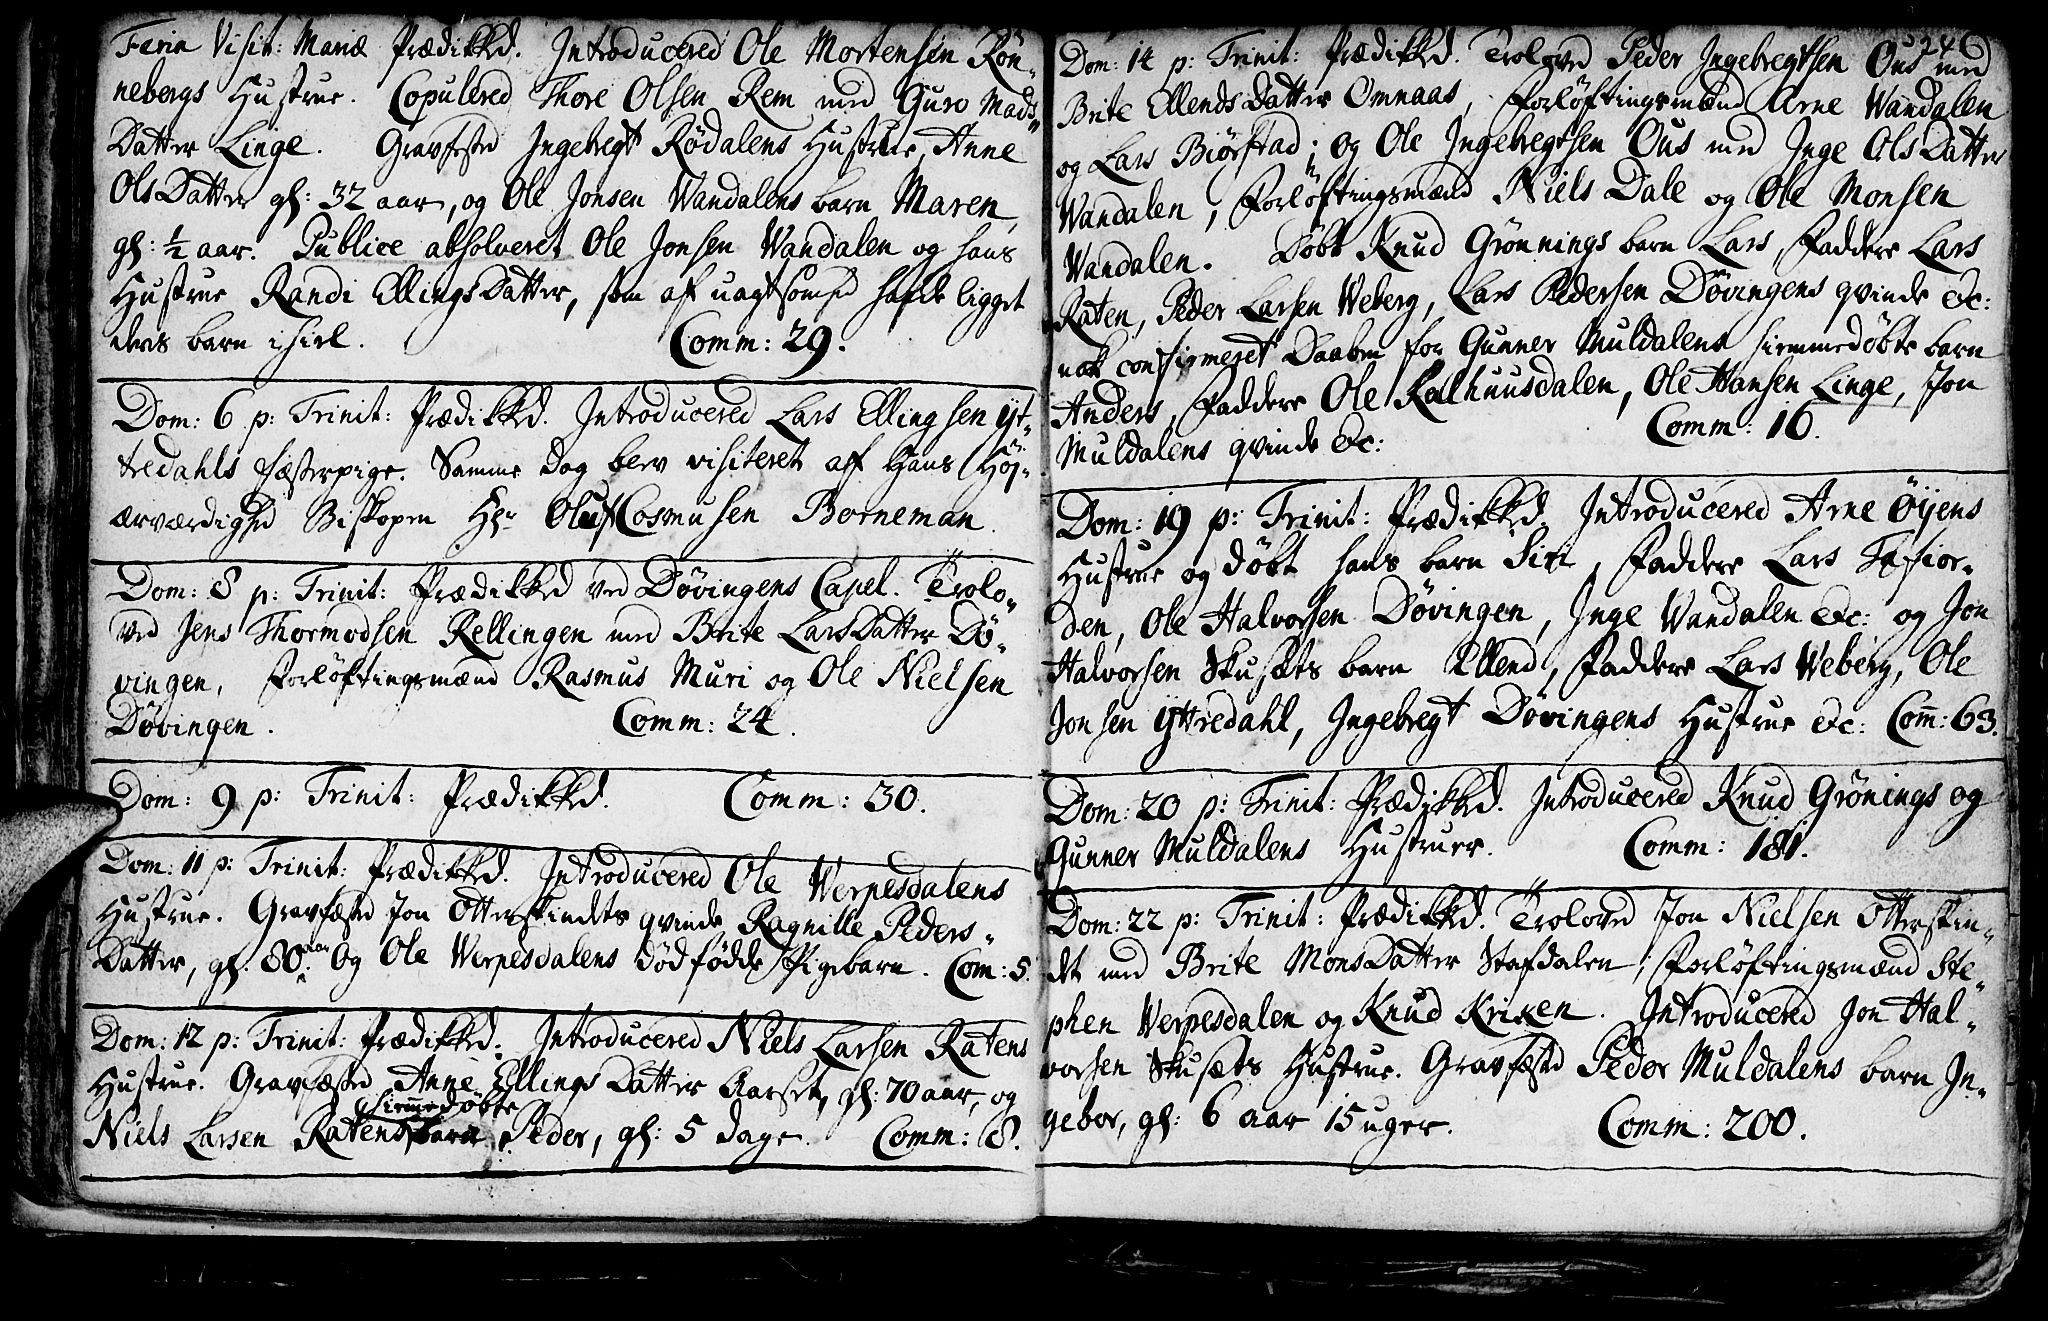 Feria Visit: Mariæ Prædikked. Introducered Ole Mortensen Rön-
nebergs Hustrue. Copulered Thore Olsen Rem med Guro Mads-
Datter Linge. Gravfested Ingebregt Rödalens Hustrue, Anne
OlsDatter gl: 32 aar, og Ole Jonsen Wandalens barn Maren,
gl: ½ aar. Publice absolveret Ole Jonsen Wandalen og hans
Hustrue Randi EllingsDatter, som af uagtsomhed hafde ligget
deres barn ihiel. Comm: 29.
Dom: 6 p: Trinit: Prædikked. Introducered Lars Ellingsen Yt-
tredahls fæsterpige. Samme dag blev visiteret aff Hans Höj-
ærværdighed Biskopen Hr Oluf Cosmusen Borneman.
Dom: 8 p: Trinit: Prædikked ved Dövingens Capel. Trolo-
ved Jens Thormodsen Rellingen med Brite LarsDatter Dö-
vingen, Forlöftingsmænd Rasmus Muri og Ole Nielsen
Dövingen. Comm: 24.
Dom: 9 p: Trinit: Prædikked. Comm: 30.
Dom: 11 p: Trinit: Prædikked. Introducered Ole Werpesdalens
Hustrue. Gravfæsted Jon Otterskindets qvinde Ragnille Peders-
Datter, gl: 80 aar. Og Ole Werpesdalens dödfödde Pigebarn. Com: 5.
Dom: 12 p: Trinit: Prædikked. Introducered Niels Larsen Ratens
Hustrue. Gravfæsted Anne EllingsDatter Aarset, gl: 70 aar, og
Niels Larsen Ratens hiemmedöbte barn Peder, gl: 5 dage. Comm: 8.
246
Dom: 14 p: Trinit: Prædikked. Troloved Peder Ingebregtsen Ous med
Brite EllendsDatter Omnaas, Forlöftingsmænd Arne Wandalen
og Lars Biörstad; og Ole Ingebregtsen Ous med Inge OlsDatter
Wandalen, Forlöftingsmænd Niels Dale og Ole Monsen
Wandalen. Döbt Knud Grönnings barn Lars, Faddere Lars
Raten, Peder Larsen Weberg, Lars Pedersen Dövingens qvinde etc:
nok confirmeret Daaben for Gunner Muldalens hiemmedöbte barn
Anders, Faddere Ole Kalhuusdalen, Ole Hansen Linge, Jon
Muldalens qvinde etc: Comm: 16.
Dom: 19 p: Trinit: Prædikked. Introducered Arne Öyens
Hustrue og döbt hans barn Siri, Faddere Lars Tafior-
den, Ole Halvorsen Dövingen, Inge Wandalen etc: og Jon
Halvorsen Skusets barn Ellend, Faddere Lars Weberg, Ole
Jonsen Yttredahl, Ingebregt Dövingens Hustrue etc: Com̃: 63.
Dom: 20 p: Trinit: Prædikked. Introducered Knud Grönings og
Gunner Muldalens Hustruer. Comm: 181.
Dom: 22 p: Trinit: Prædikked. Troloved Jon Nielsen Otterskin-
det med Brite MonsDatter Stafdalen; Forlöftingsmænd Ste-
phen Werpesdalen og Knud Kriken. Introducered Jon Hal-
vorsen Skusæts Hustrue. Gravfæsted Peder Muldalens barn In-
gebor, gl: 6 aar 15 uger. Comm: 200.